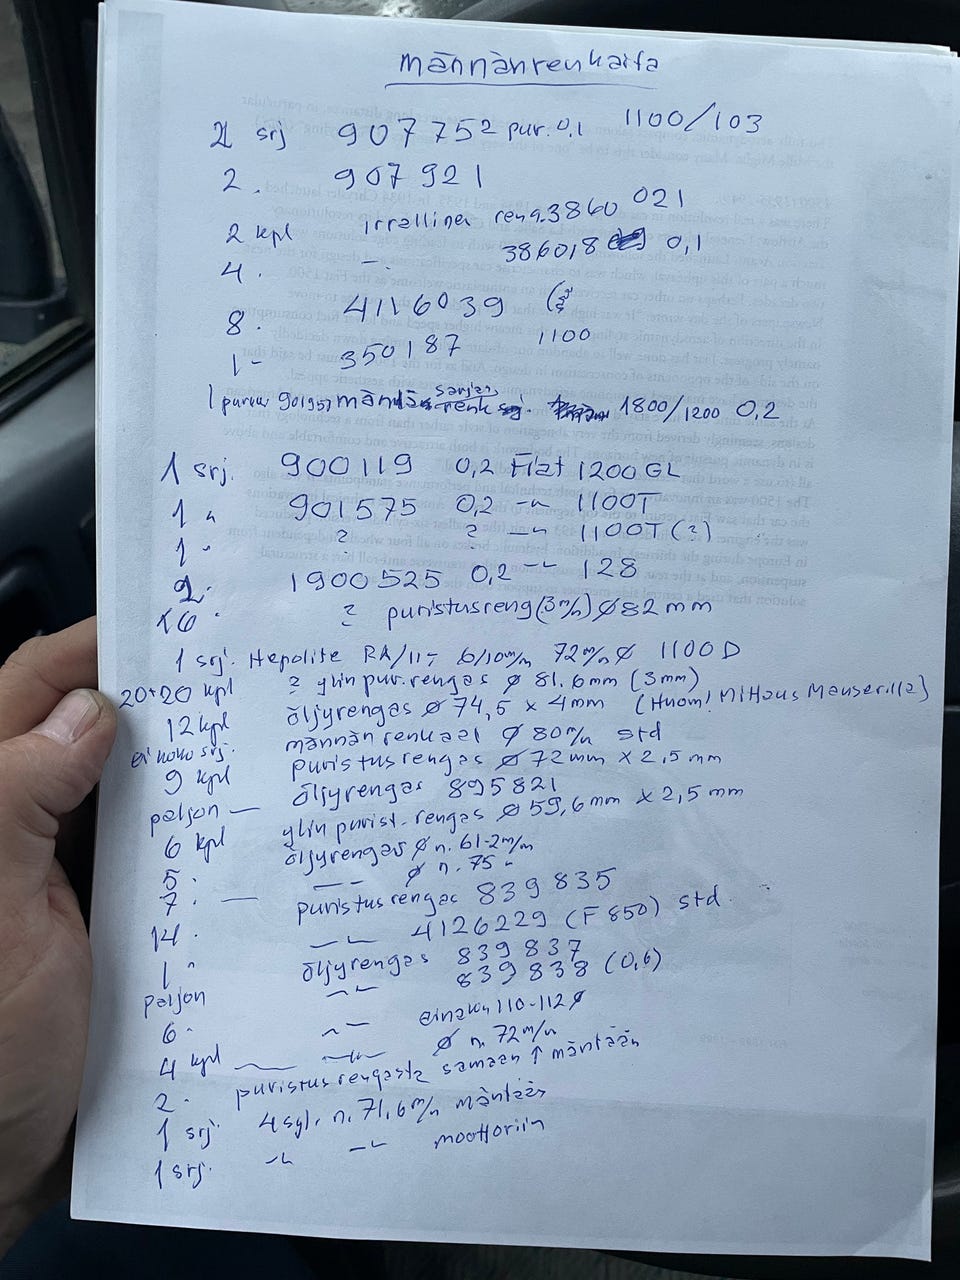 männänrenkaita
2 srj 907752 pur. 0,1 1100/103
2. 907921
2 kpl irrallinen reng. 3860 021
4. -"- 386018 0,1
8. 4116039
1 - 350187 1100
1 901957 männän renk sarjas 1800/1200 0,2
1 srj. 900119 0,2 Fiat 1200 GL
1 " 901575 0,2 -"- 1100T
1 " ? ? -"- 1100T (?)
2. 1900525 0,2 -"- 128
16. ? puristusreng (3 m/m) Ø 82 mm
1 srj. Hepolite 6/10 m/m 72 m/m Ø 1100 D
20+20 kpl ? ylin pur. rengas Ø 81.6mm (3mm)
12 kpl öljyrengas Ø 74,5 x 4mm (Huom! Mittaus Mauserilla)
ei koko srj. männän renkaat Ø 80 m/m std
9 kpl puristusrengas Ø 72mm x 2,5 mm
paljon — öljyrengas 895821
6 kpl ylin purist. rengas Ø 59,6mm x 2,5 mm
5. öljyrengas Ø n. 61-2 m/m
7. — -"- Ø n. 75 "
14. puristusrengas 839835
1 " -"- 4126229 (F 850) std.
paljon öljyrengas 839 837
6. -"- 839 838 (0,6)
4 kpl -"- 110-112 Ø
2. -"- Ø n. 72 m/m
1 srj. puristusrengasta samaan ↑ mäntään
1 srj. 4 syl. n. 71,6 m/m mäntään
-"- -"- moottoriin